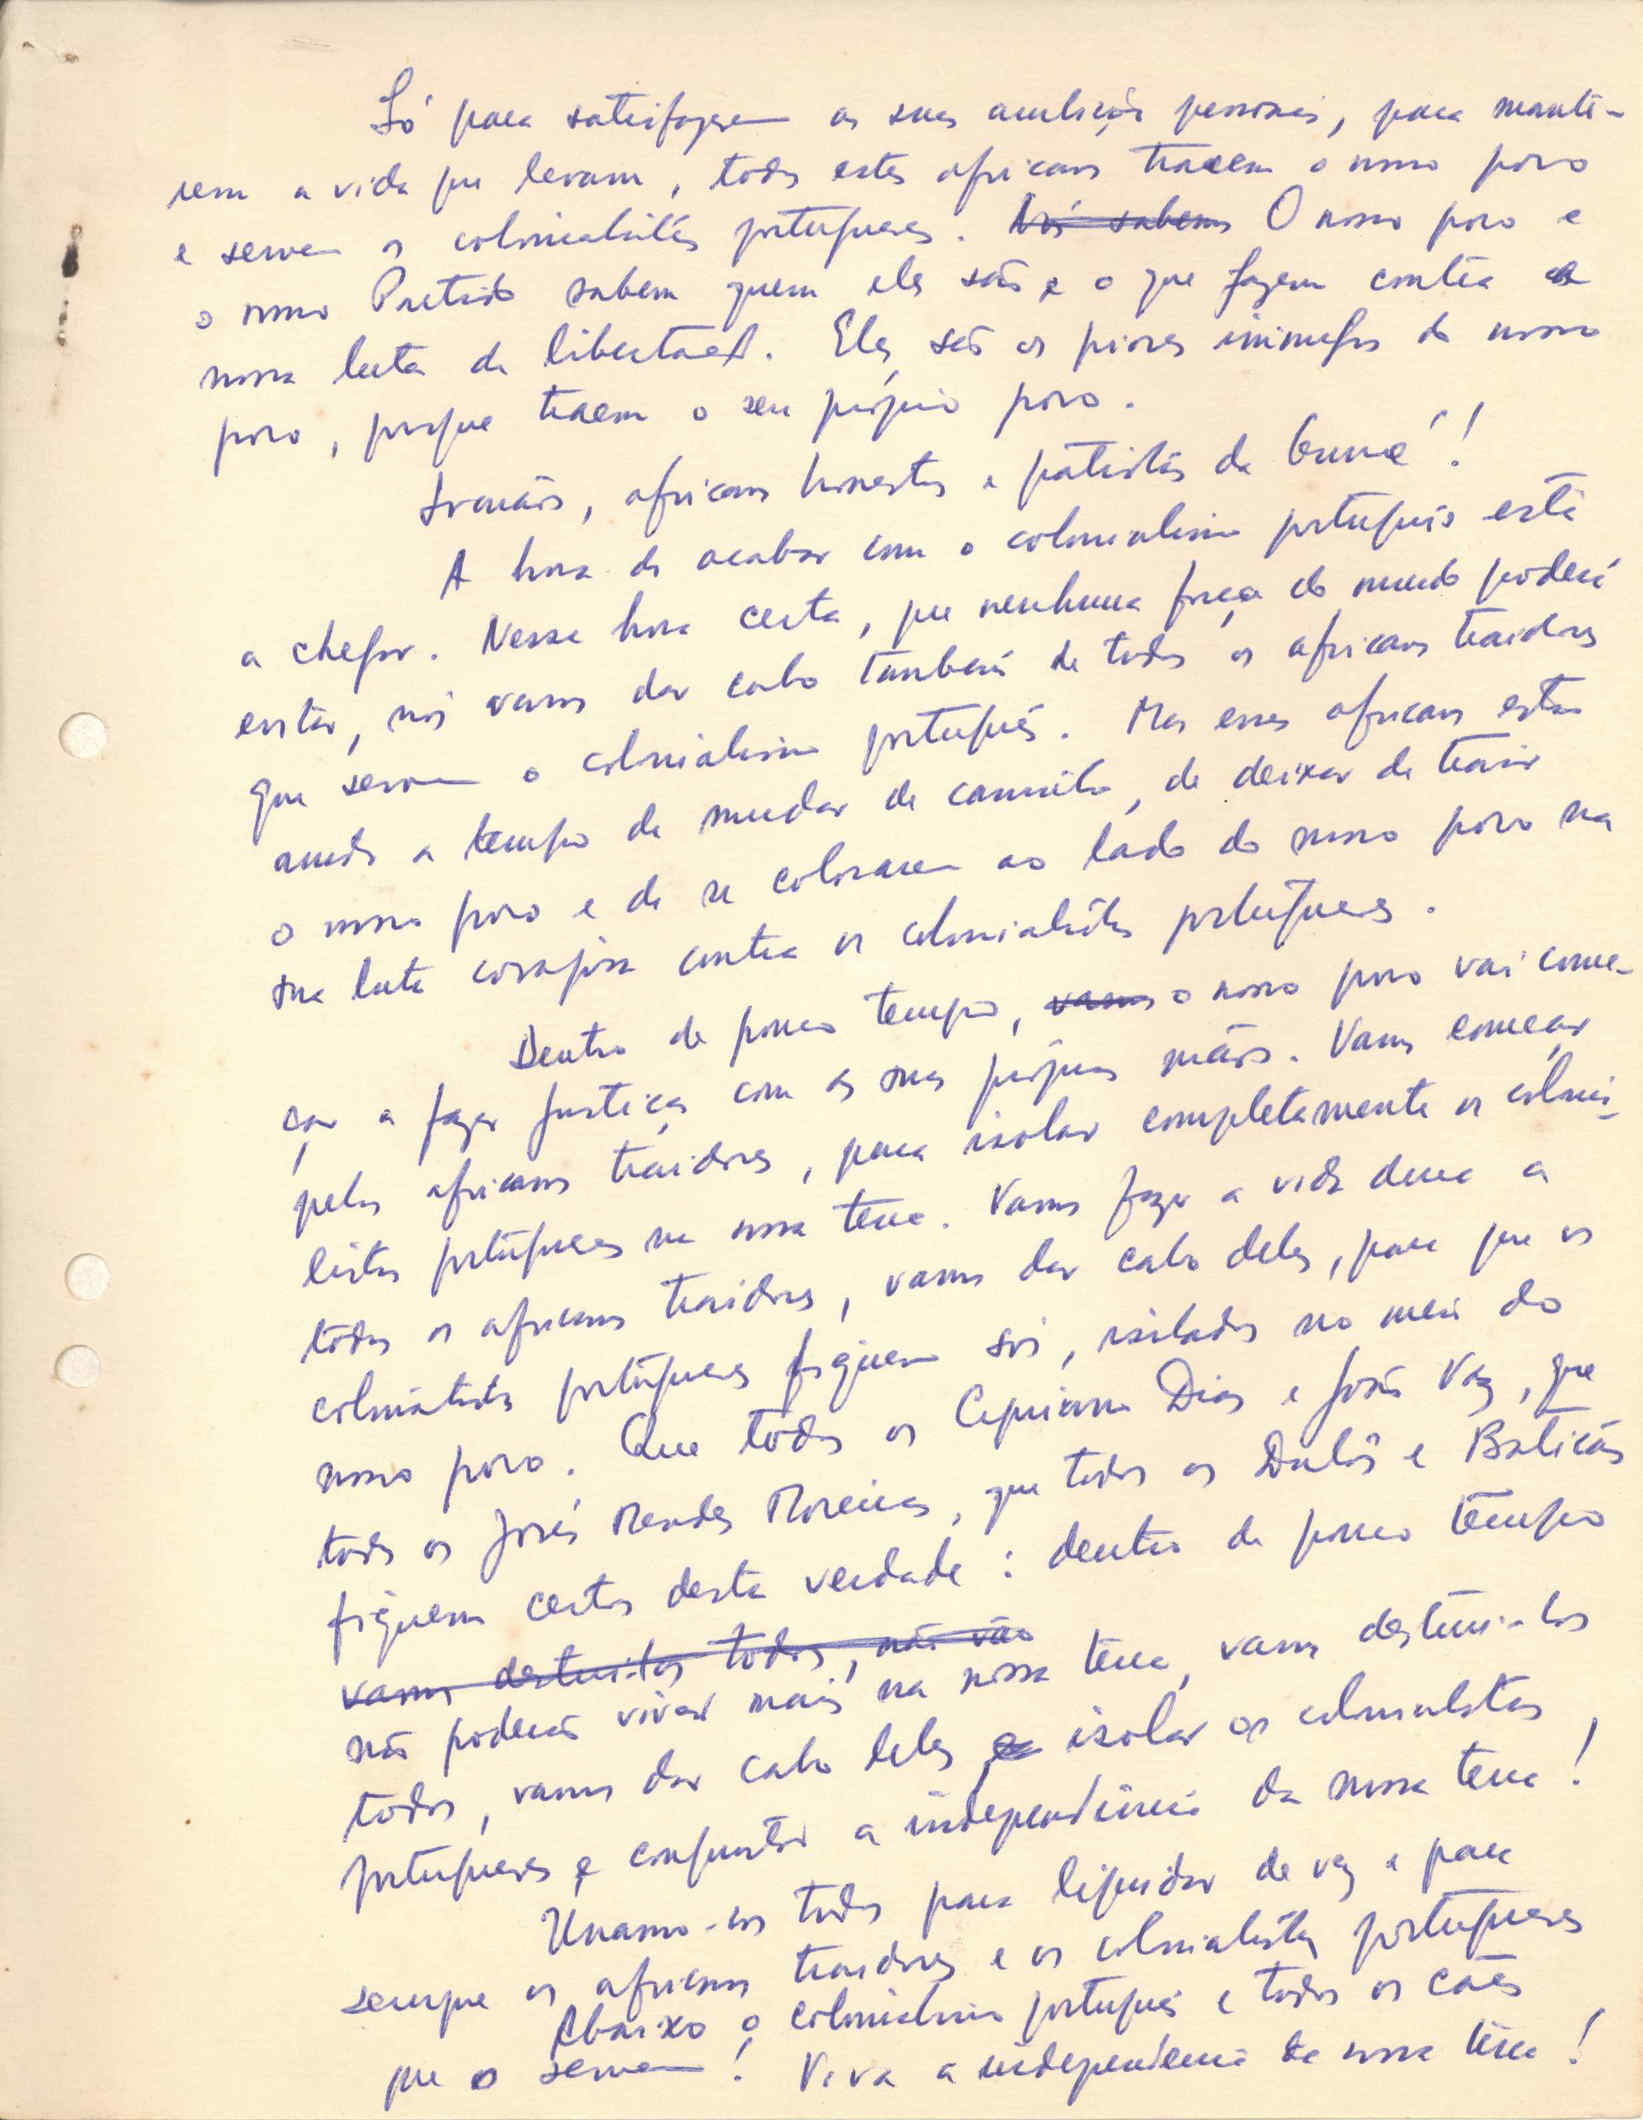 Só para satisfazerem as suas ambições pessoais, para mante-
rem a vida que levam, todos estes africanos traem o nosso povo
e servem os colonialistas portugueses. Nós sabemos O nosso povo e
o nosso Partido sabem quem eles são e o que fazem contra a
nossa luta de libertação. Eles são os piores inimigos do nosso
povo, porque traem o seu próprio povo.
Irmãos, africanos honestos e patriotas da Guiné!
A hora de acabar com o colonialismo português está
a chegar. Nessa hora certa, que nenhuma força do mundo poderá
evitar, nós vamos dar cabo também de todos os africanos traidores
que servem o colonialismo português. Mas esses africanos estão
ainda a tempo de mudar de caminho, de deixar de trair
o nosso povo e de se colocarem ao lado do nosso povo na
sua luta corajosa contra os colonialistas portugueses.
Dentro de pouco tempo, vamos o nosso povo vai come-
çar a fazer justiça com as suas próprias mãos. Vamos começar
pelos africanos traidores, para isolar completamente os colonia-
listas portugueses na nossa terra. Vamos fazer a vida dura a
todos os africanos traidores, vamos dar cabo deles, para que os
colonialistas portugueses fiquem sós, isolados no meio do
nosso povo. Que todos os Cipriano Dias e José Vaz, que
todos os José Mendes Moreiras, que todos os Dulôs e Baticãs
fiquem certos desta verdade: dentro de pouco tempo
vamos destrui-los todos, não vão
não poderão viver mais na nossa terra, vamos destrui-los
todos, vamos dar cabo deles, isolar os colonialistas
portugueses e conquistar a independência da nossa terra!
Unamo-nos todos para liquidar de vez e para
sempre os africanos traidores e os colonialistas portugueses
Abaixo o colonialismo português e todos os cães
que o servem! Viva a independência da nossa terra!